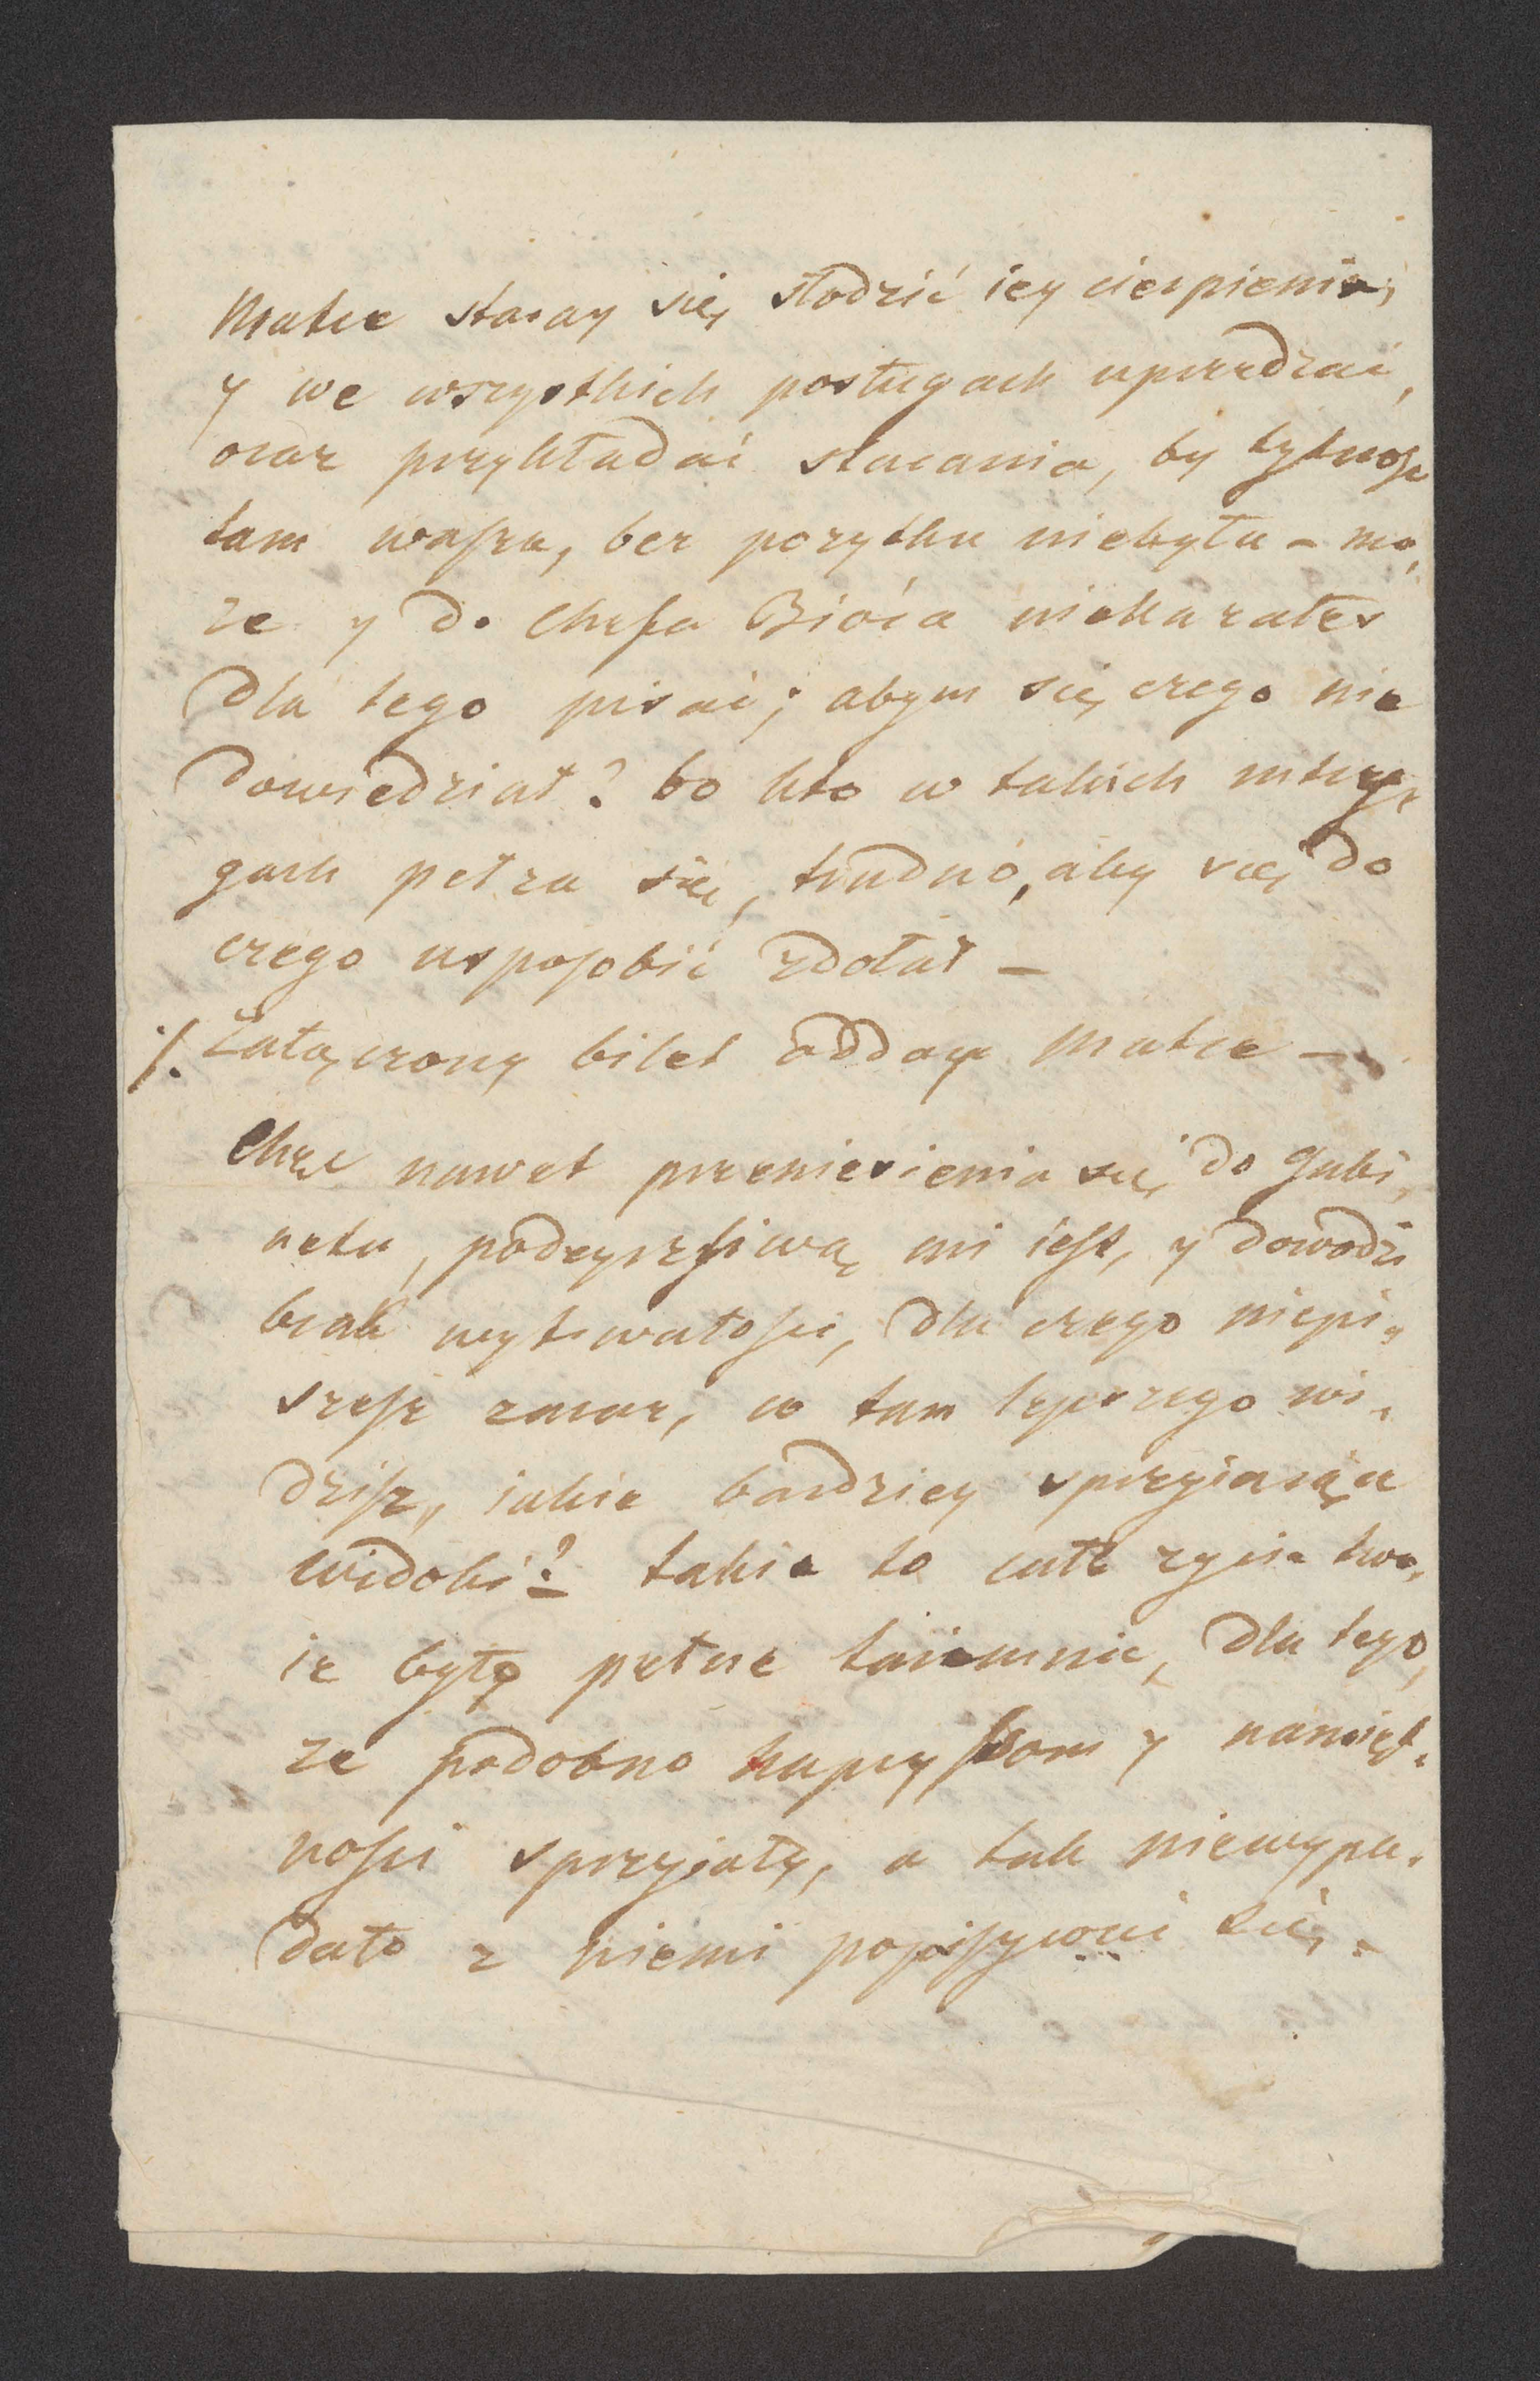 Matce staray się słodzić iey cierpienia,
y we wszystkich posługach uprzedzać,
oraz przykładać starania, by bytność
tam wasza, bez pozytku niebyła – mo,
ze y do Chefa Bióra niekazałeś
dla tego pisać; abym się czego nie
dowiedział? bo kto w takich intry,
gach pełza się, trudno, aby się do
czego usposobić zdołał –
./. Załączony bilet odday Matce –
Chęć nawet przeniesienia się do gabi,
netu, podeyrzliwą mi iest, y dowodzi
brak wytrwałości, dla czego niepi,
szesz zaraz, co tam lepszego wi,
dzisz, iakie bardziey sprzyiaiące
widoki? takie to całe zycie two,
ie było pełne taiemnic, dla tego,
ze podobno kaprysom y namięt,
ności sprzyiały, a tak niewypa,
dało z niemi popisywać się. –